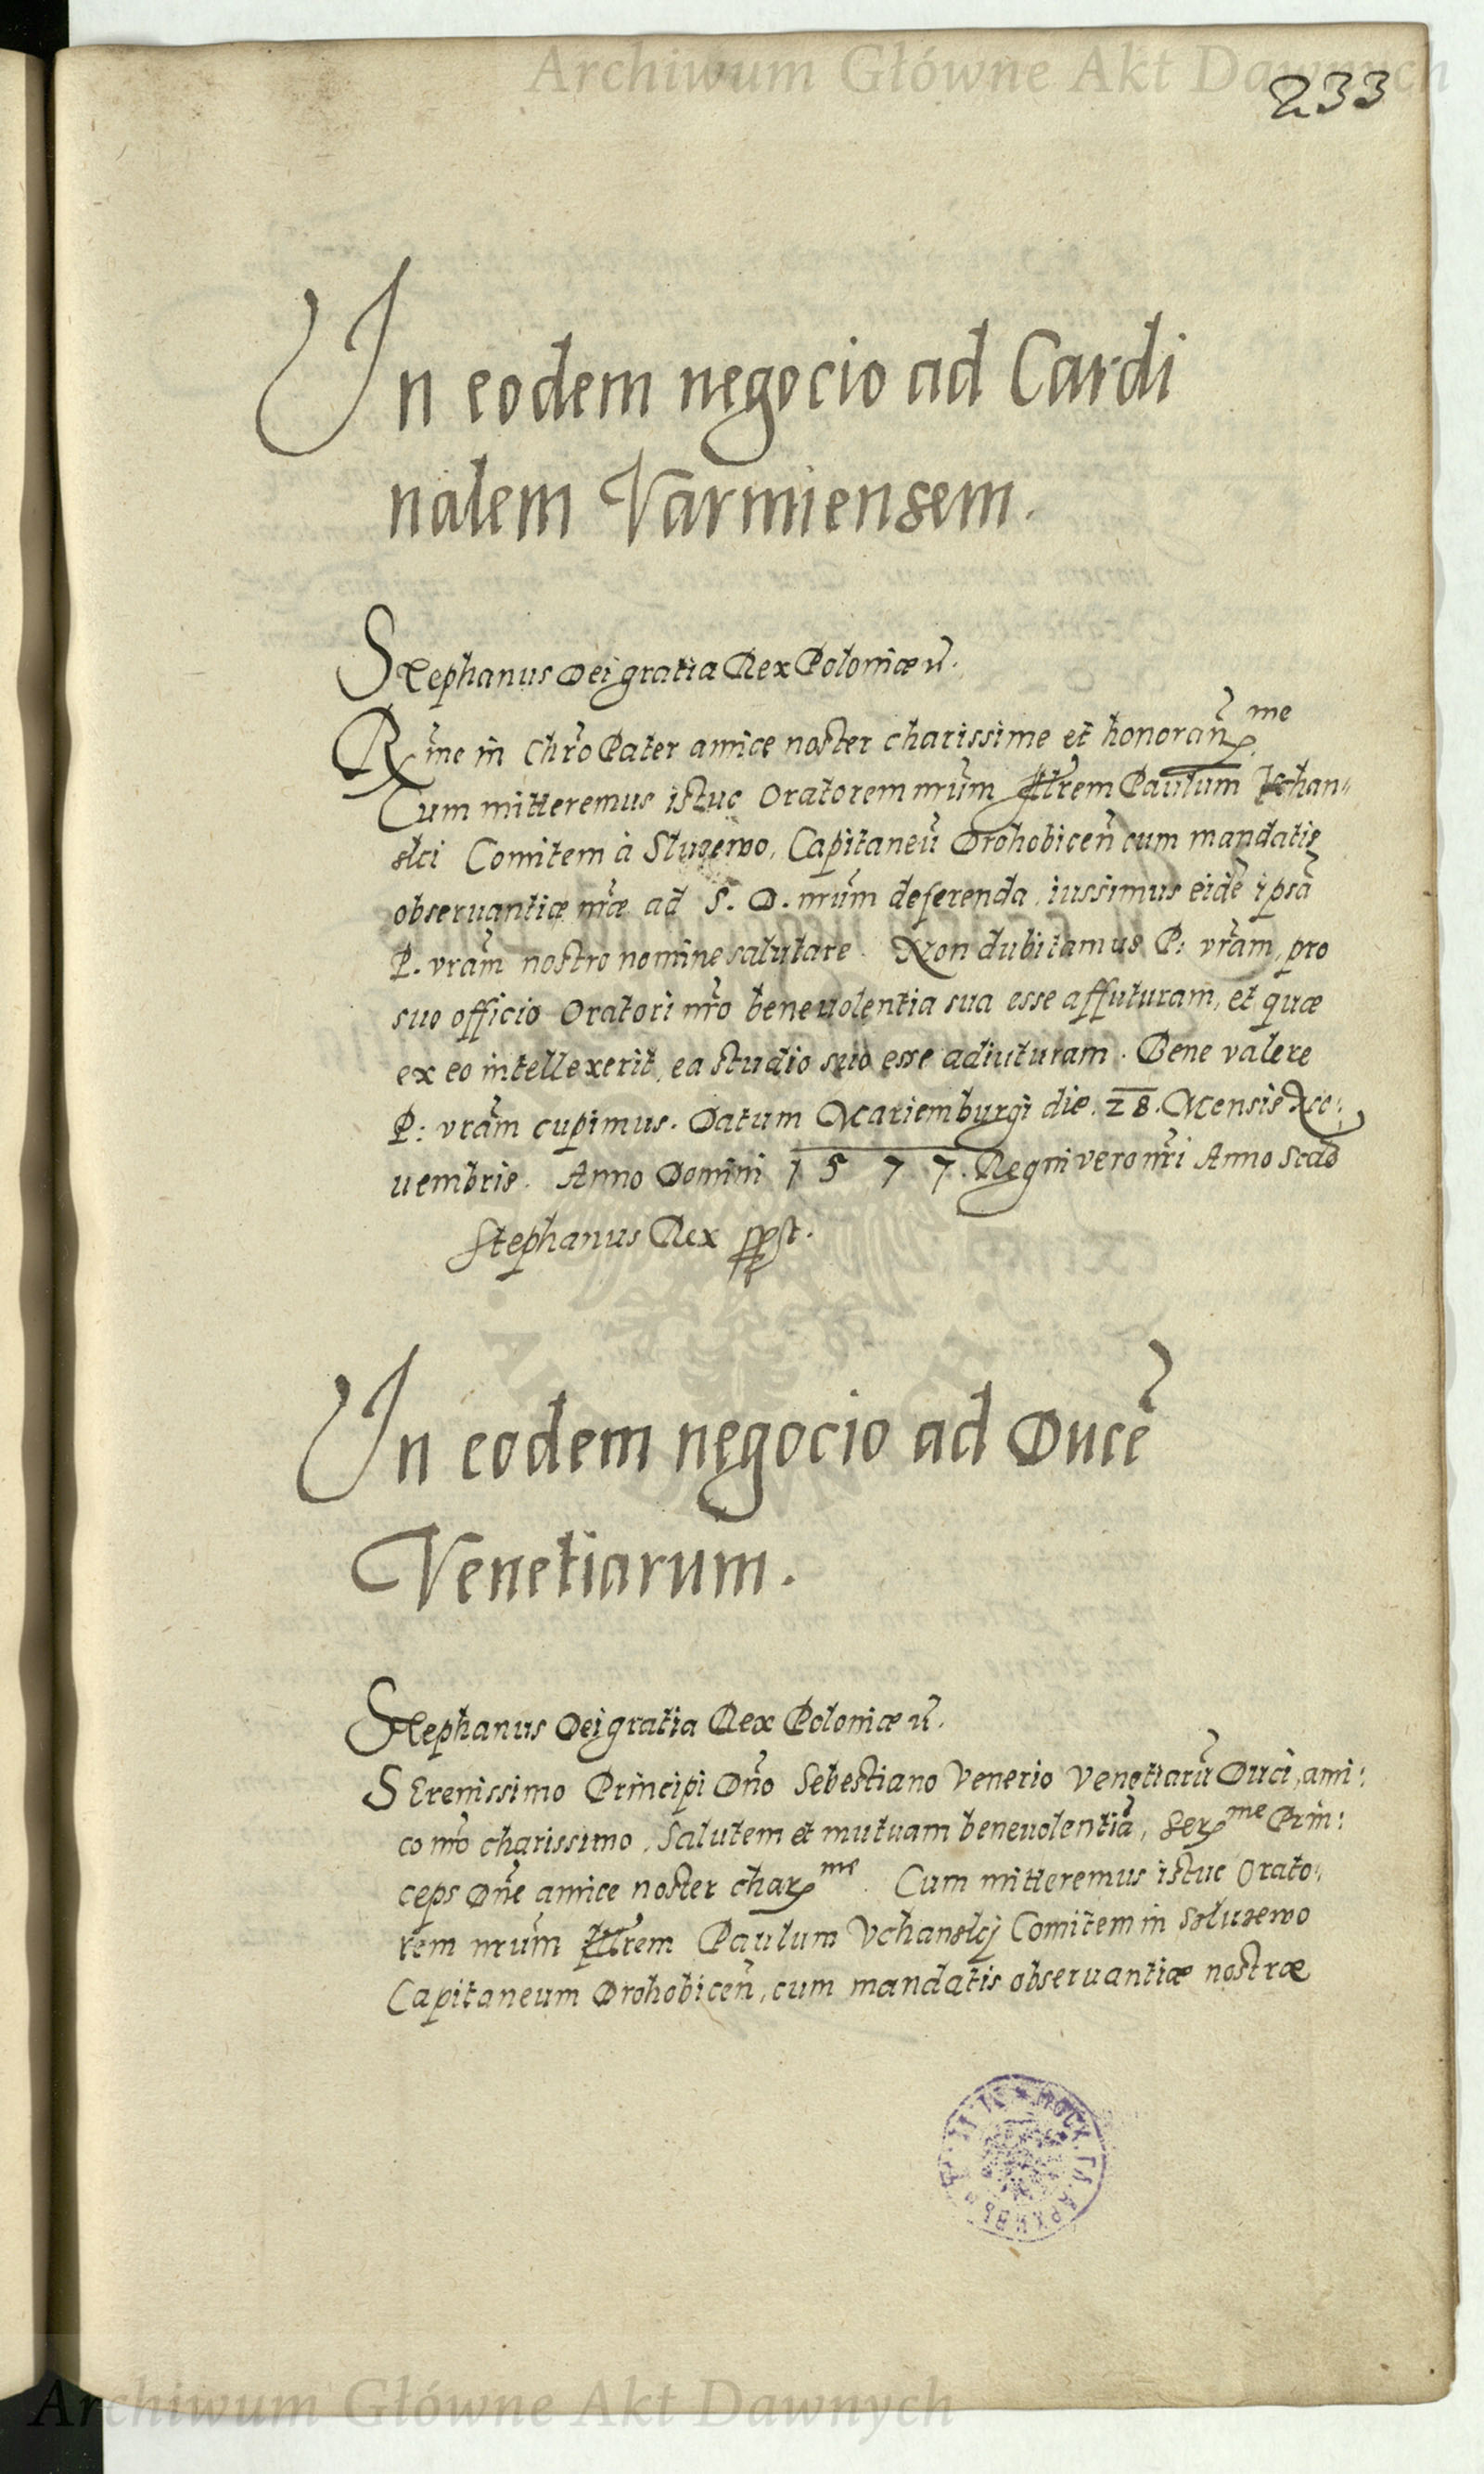 Archiwum Główne Akt Dawnych
233
In eodem negocio ad Cardi
nalem Varmiensem.
Stephanus Dei gratia Rex Poloniæ
Rm̃e in Chr̃o Pater amice noster charissime et honoran̄ me
Cum mitteremus istuc Oratorem nr̃um Paulum Vchan„
sκi Comitem à Sluzewo, Capitaneũ Drohobiceñ cum mandatis
obseruantiæ nr̃æ ad S. D. nr̃um deferenda, iussimus eidẽ ipsã
P. vr̃am nostro nomine salutare. Non dubitamus P: vr̃am, pro
suo officio Oratori nr̃o beneuolentia sua esse affuturam, et quæ
ex eo intellexerit, ea studio suo esse adiuturam. Bene valere
P: vr̃am cupimus. Datum Mariemburgi die. 28. Mensis No:
uembris. Anno Domini 1577. Regni vero nr̃i Anno Scdo
Stephanus Rex sspst.
In eodem negocio ad Ducẽ
Venetiarum.
Stephanus Dei gratia Rex Poloniæ
SErenissimo Principi Dño Sebestiano Venerio Venetiarũ Duci, ami:
co nr̃o charissimo, Salutem et mutuam beneuolentiã, Ser me Prin:
ceps Dñe amice noster char me. Cum mitteremus istuc Orato:
rem nr̃um Paulum Vchanskj Comitem in Sluzewo
Capitaneum Drohobiceñ, cum mandatis obseruantiæ nostræ
Archiwum Główne Akt Dawnych